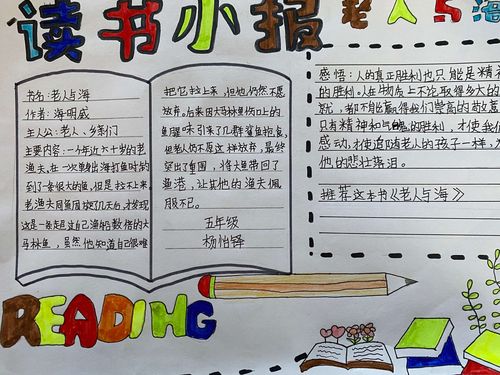 读书小报
老人与海
书名：老人与海
作者：海明威
主人公：老人、乡亲们
主要内容：一个年近六十岁的老
渔夫，在一次单身出海打鱼时钓
到了一条很大的鱼，但是拉不上来。
老渔夫同鱼周旋了几天后，才发现
这是一条超过自己渔船数倍的大
马林鱼，虽然他知道自己很难
把它拉上来，但他仍然不愿
放弃。后来因大马林鱼伤口上的
鱼腥味引来了几群鲨鱼抢鱼，
但老人仍不愿这样放弃，最终
突出重围，将大鱼带回了
渔港，让其他的渔夫佩
服不已。
五年级
杨怡铎
感悟：人的真正胜利也只能是精神
的胜利。人在物质上不论取得多大的
就，都不能赢得我们崇高的敬意
只有精神和气魄的胜利，才使我们
感动，才使追随老人的孩子一样，为
他的悲壮落泪。
推荐这本书《老人与海》
READING